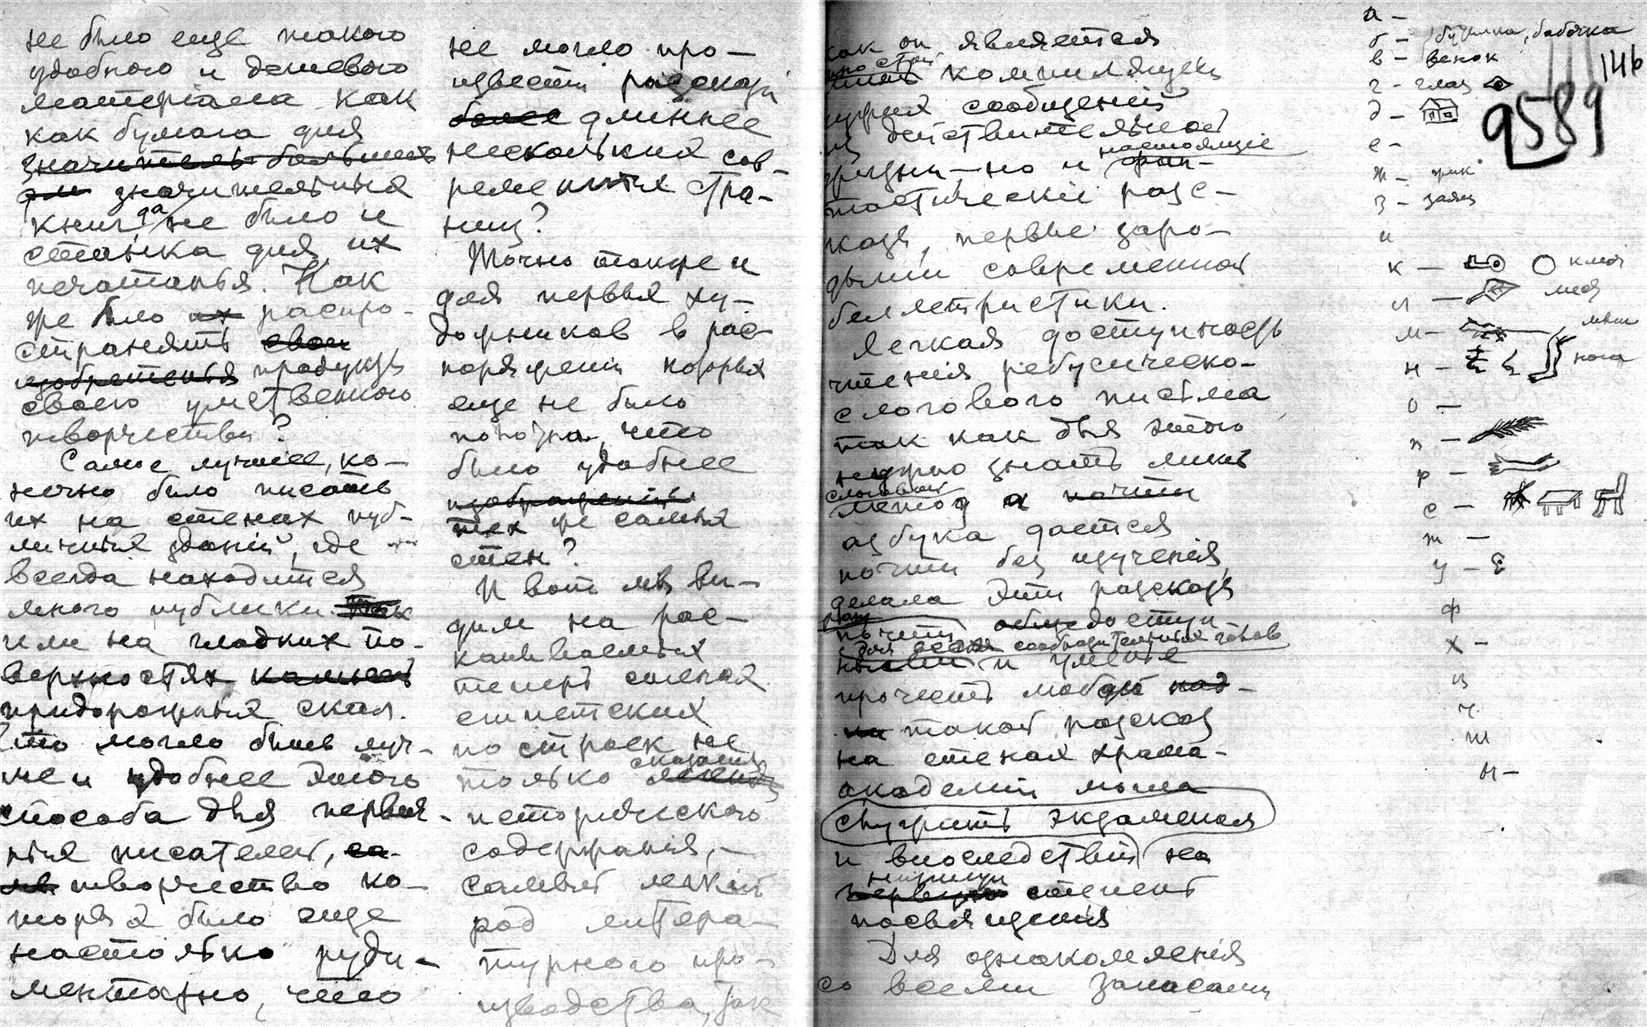 не было еще такого
удобного и дешевого
матеріала как
как бумага для
значитель больших
значительных
книг, да не было и
станка для их
печатанья. Как
же было их распро-
странять свои
изобретенья продукты
своего умственного
творчества?
Самое лучшее, ко-
нечно было писать
их на стенах пуб-
личных зданій, где
всегда находится
много публики. Так
или на гладких по-
верхностях камней
придорожных скал.
Что могло быть луч-
ше и удобнее этого
способа для первых
писателей,
творчество ко-
торых было еще
настолько руди-
ментарно, что
не могло про-
извести разсказы
более длиннее
нескольких сов-
ременных стра-
ниц?
Точно также и
для первых ху-
дожников в рас-
поряжении которых
еще не было
полотна, что
было удобнее
изображеній
тех же самых
стен?
И вот мы ви-
дим на рас-
капываемых
теперь стенах
египетских
построек не
сказания
только легенды
историческаго
содержанія, —
самый легкій
род литера-
турного про-
изводства, так
как он является
простой
компиляцией
чужих сообщеній
из действительной
настоящие
жизни — но и фан-
тастическіе разс-
казы, первые заро-
дыши современной
беллетристики.
Легкая доступность
чтенія ребусическо-
слогового письма
так как для этого
нужно знать лишь
слоговой
метод а почти
азбука дается
почти без изученія,
делала эти разсказы
почти общедоступ-
для всех сообразительных голов
ными и уменье
прочесть любой над-
такой разсказ
на стенах храма-
академіи могла
служить экзаменом
и впоследствіи на
низшую
первую степень
посвященія
Для ознакомленія
со всеми запасами
146
9589
а —
б — бабочка
в — венок
г — глаз
д —
е —
ж — жук
з — заяц
и
к — ключ
л —
м —
н — нога
о —
п —
р —
с —
т —
у —
ф
х —
ц
ч
ш
ы —